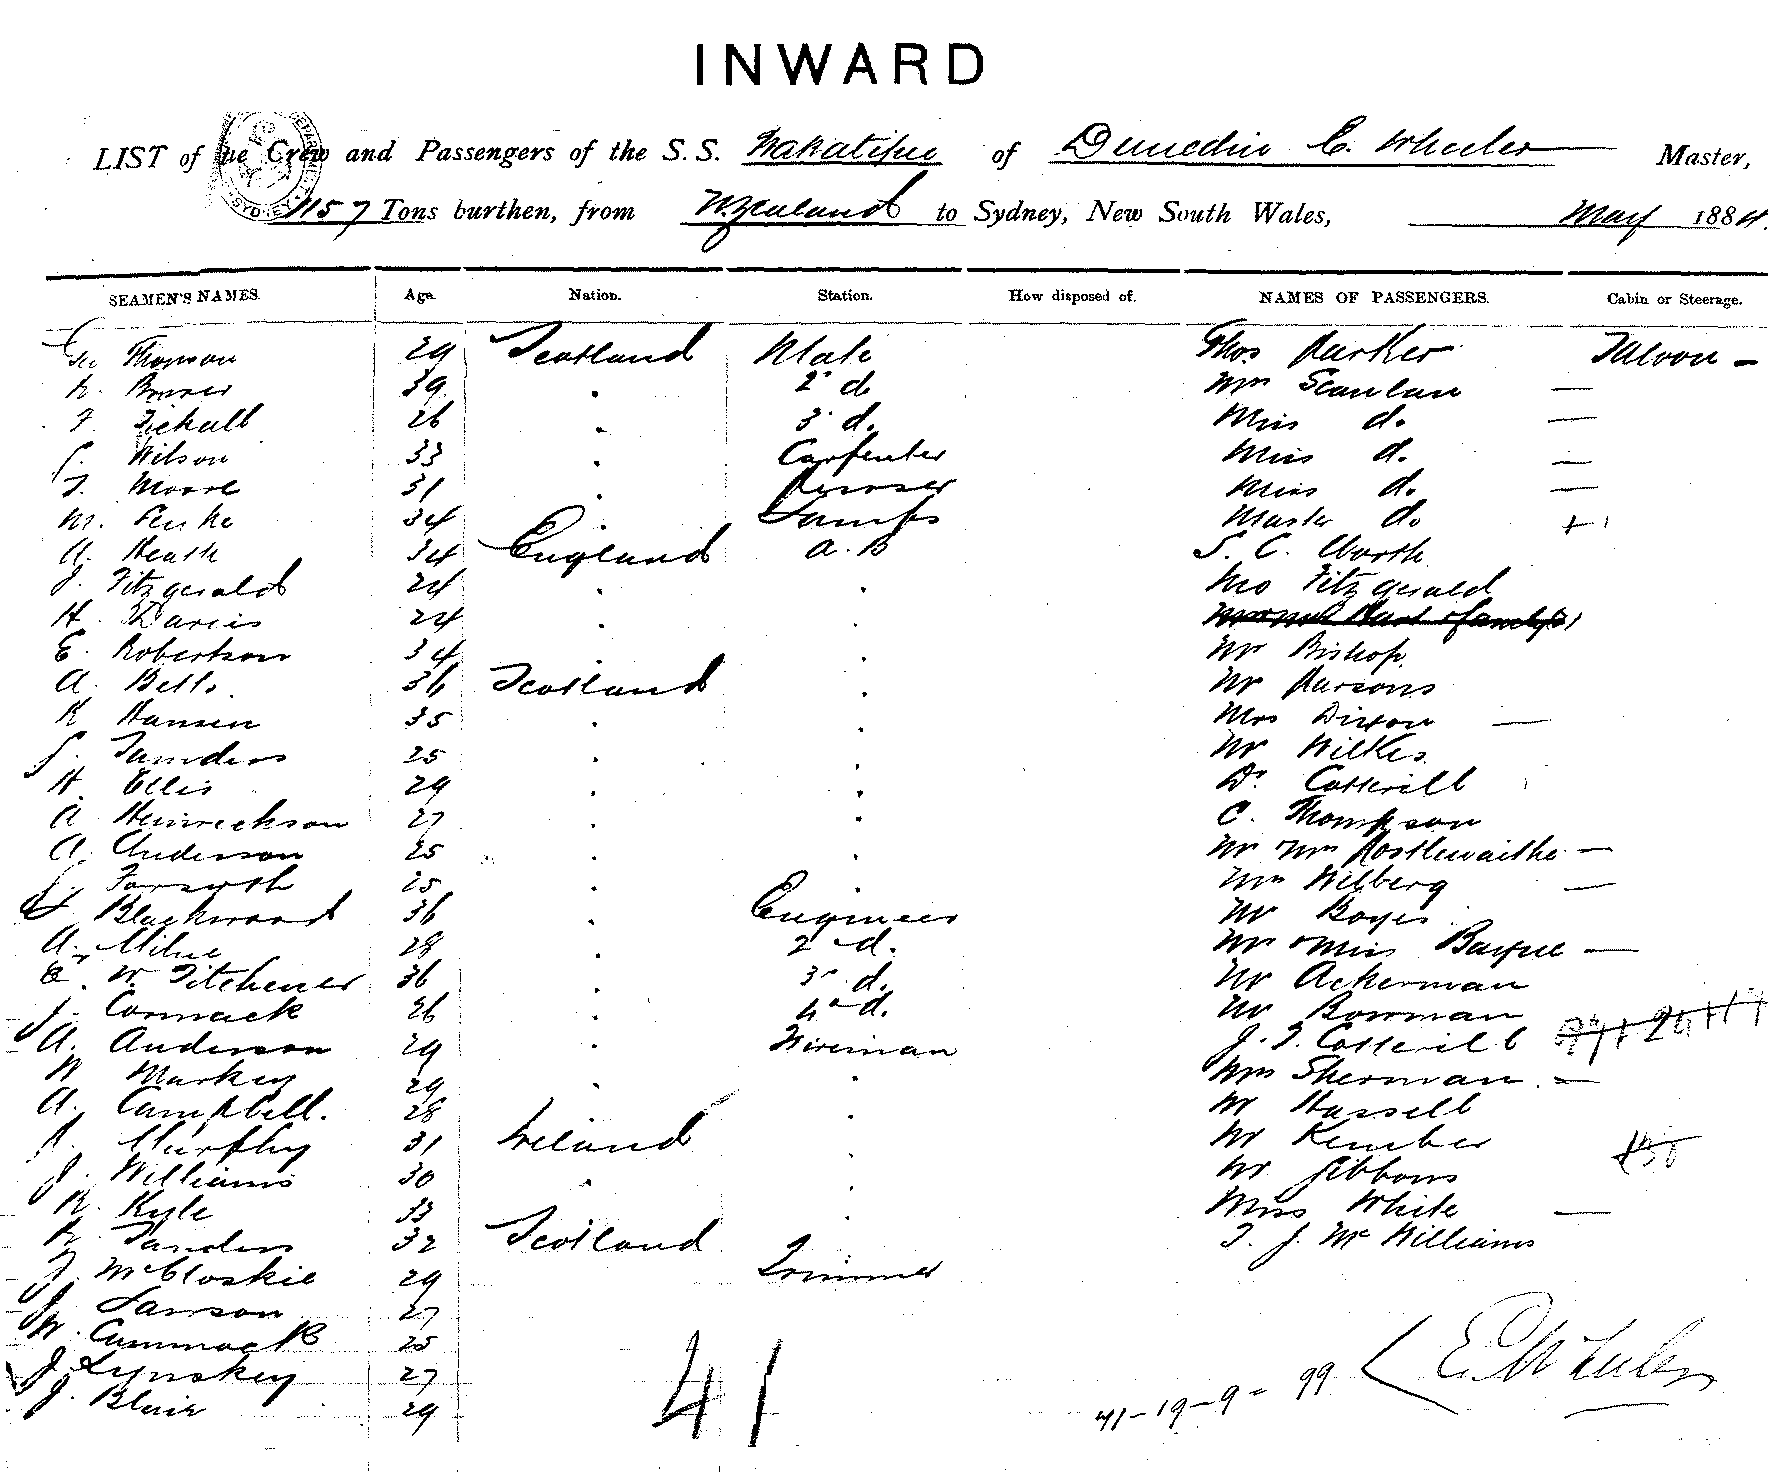 INWARD
LIST of the Crew and Passengers of the S.S. Wakatipu of Dunedin E. Wheeler Master,
1157 Tons burthen, from N. Zealand to Sydney, New South Wales, May 1884.
SEAMEN'S NAMES. Age. Nation. Station. How disposed of. NAMES OF PASSENGERS. Cabin or Steerage.
Thomson 29 Scotland Mate Thos Parker Saloon -
39 . 2d d Mrs Scanlan —
F. 26 . 3d d. Miss d. —
Wilson 33 . Carpenter Miss d. —
T. Moore 31 . Miss d. —
M. 34 . Lamps Master d. +
A. Heath 34 England A.B S. C. Worth
J. Fitzgerald 24 . . Mrs Fitzgerald
H. Davis 24 . .
E. Robertson 34 . . Mr Bishop
A. Betts 36 Scotland . Mr Parsons
K Hansen 35 . . Mrs Dixon —
Sanders 25 . . Mr Wilkes
H. Ellis 29 . . Dr Cotterill
A Heinreckson 27 . . C. Thompson
A. Anderson 25 . Mr & Mrs Postlewaithe —
Forsyth 25 . . Mrs Wilberg —
Blackwood 36 . Engineer Mr Boyes
A. Milne 28 2d d. Mr & Miss Bayne —
W. Titchener 36 . 3d d. Mr Ackerman
J. Cormack 26 . 4th d. Mr Bowman
A. Anderson 29 . Fireman J. J. Cotterill
W Markey 29 . . Mrs Sherman —
A. Campbell. 28 . Mr Hassell
Murphy 31 Ireland . Mr Kember
J. Williams 30 . . Mr Gibbons
R. Kyle 33 . Miss White —
Sanders 32 Scotland T. J. McWilliams
J. McCloskie 29 Trimmer
J. Lawson 27
W. Cammack 25
J. Lynskey 27
J. Blair 29
41
41-19-9- 99
E Wheeler